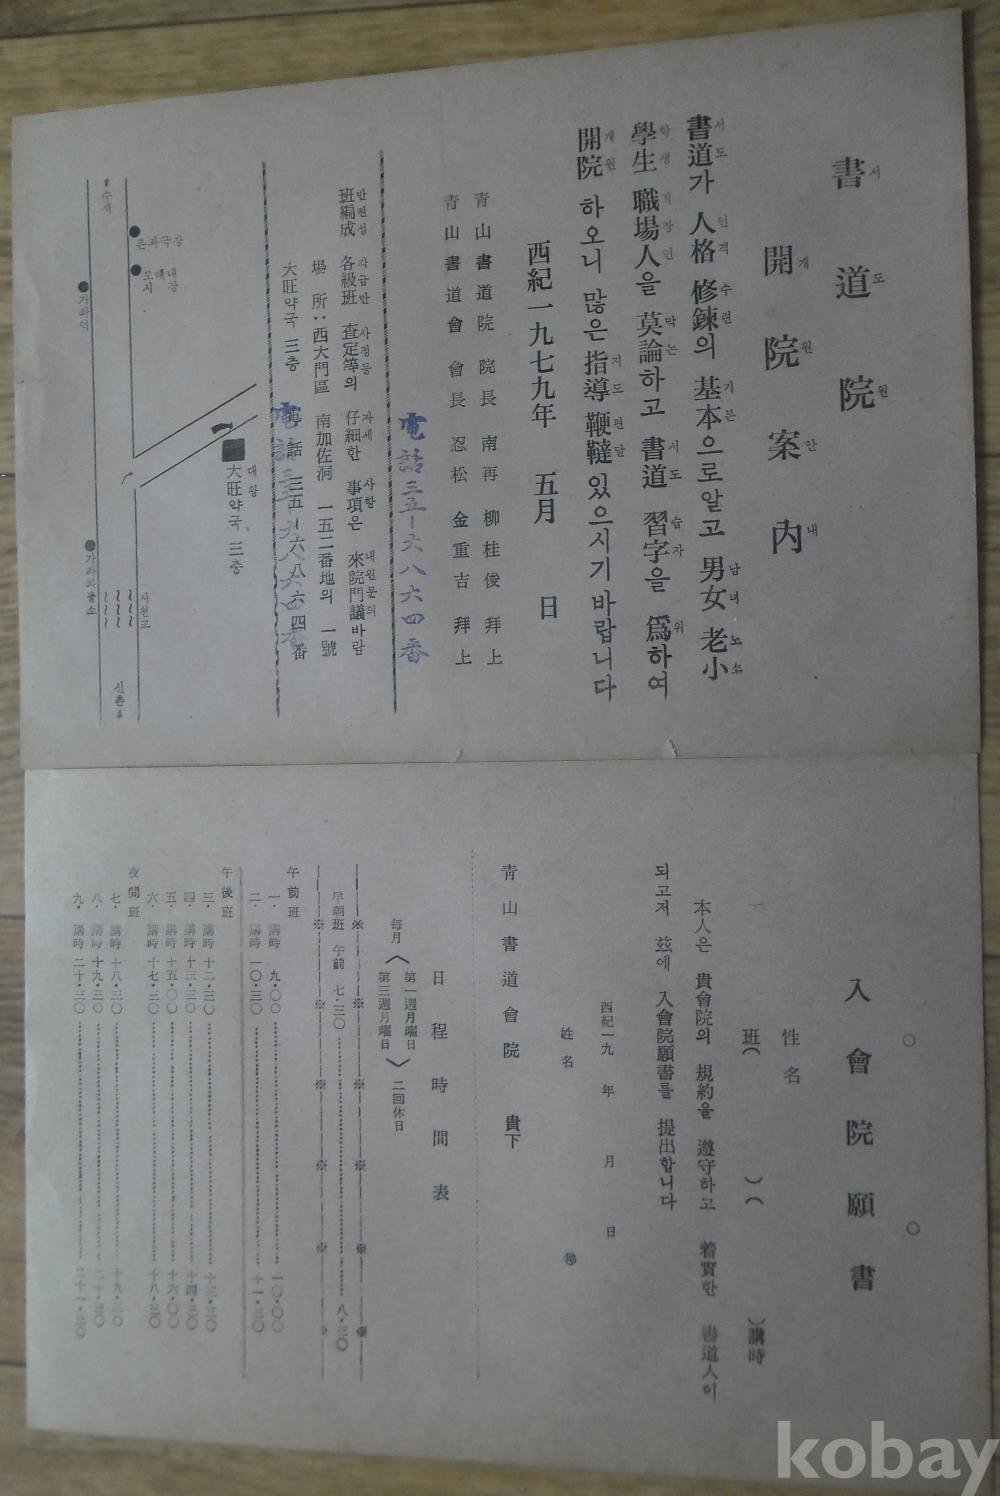 書道院
서도원
開院案內
개원안내
書道가 人格 修鍊의 基本으로알고 男女 老小
서도 인격 수련 기본 남녀 노소
學生 職場人을 莫論하고 書道 習字을 爲하여
학생 직장인 막논 서도 습자 위
開院 하오니 많은 指導 鞭韃 있으시기 바랍니다
개원 지도 편달
西紀一九七九年 五月 日
靑山書道院 院長 南再 柳桂俊 拜上
靑山書道會 會長 忍松 金重吉 拜上
電話三五-六八六四番
班編成 各級班 査定等의 仔細한 事項은 來院門議바람
반편성 각급반 사정등 자세 사항 내원문의
場所:西大門區 南加佐洞 一五二番地의 一號
大旺약국 三층 電話 三五-六八六四番
大旺약국 三층
대왕
은좌극장
모래내
시장
수색
가좌역
가좌파출소
사천교
신촌
入會院願書
姓名
班( )( )講時
本人은 貴會院의 規約을 遵守하고 着實한 書道人이
되고저 玆에 入會院願書를 提出합니다
西紀一九 年 月 日
姓名 ㊞
靑山書道會院 貴下
日程時間表
每月 < 第一週月曜日 第三週月曜日 > 二回休日
早朝班 午前 七·三〇 八·三〇
午前班
一· 講時 九·〇〇 一〇·〇〇
二· 講時 一〇·三〇 十一·三〇
午後班
三· 講時 十二·三〇 十三·三〇
四· 講時 十三·三〇 十四·三〇
五· 講時 十五·〇〇 十六·〇〇
六· 講時 十七·三〇 十八·三〇
夜間班
七· 講時 十八·三〇 十九·三〇
八· 講時 十九·三〇 二十·三〇
九· 講時 二十·三〇 二十一·三〇
kobay